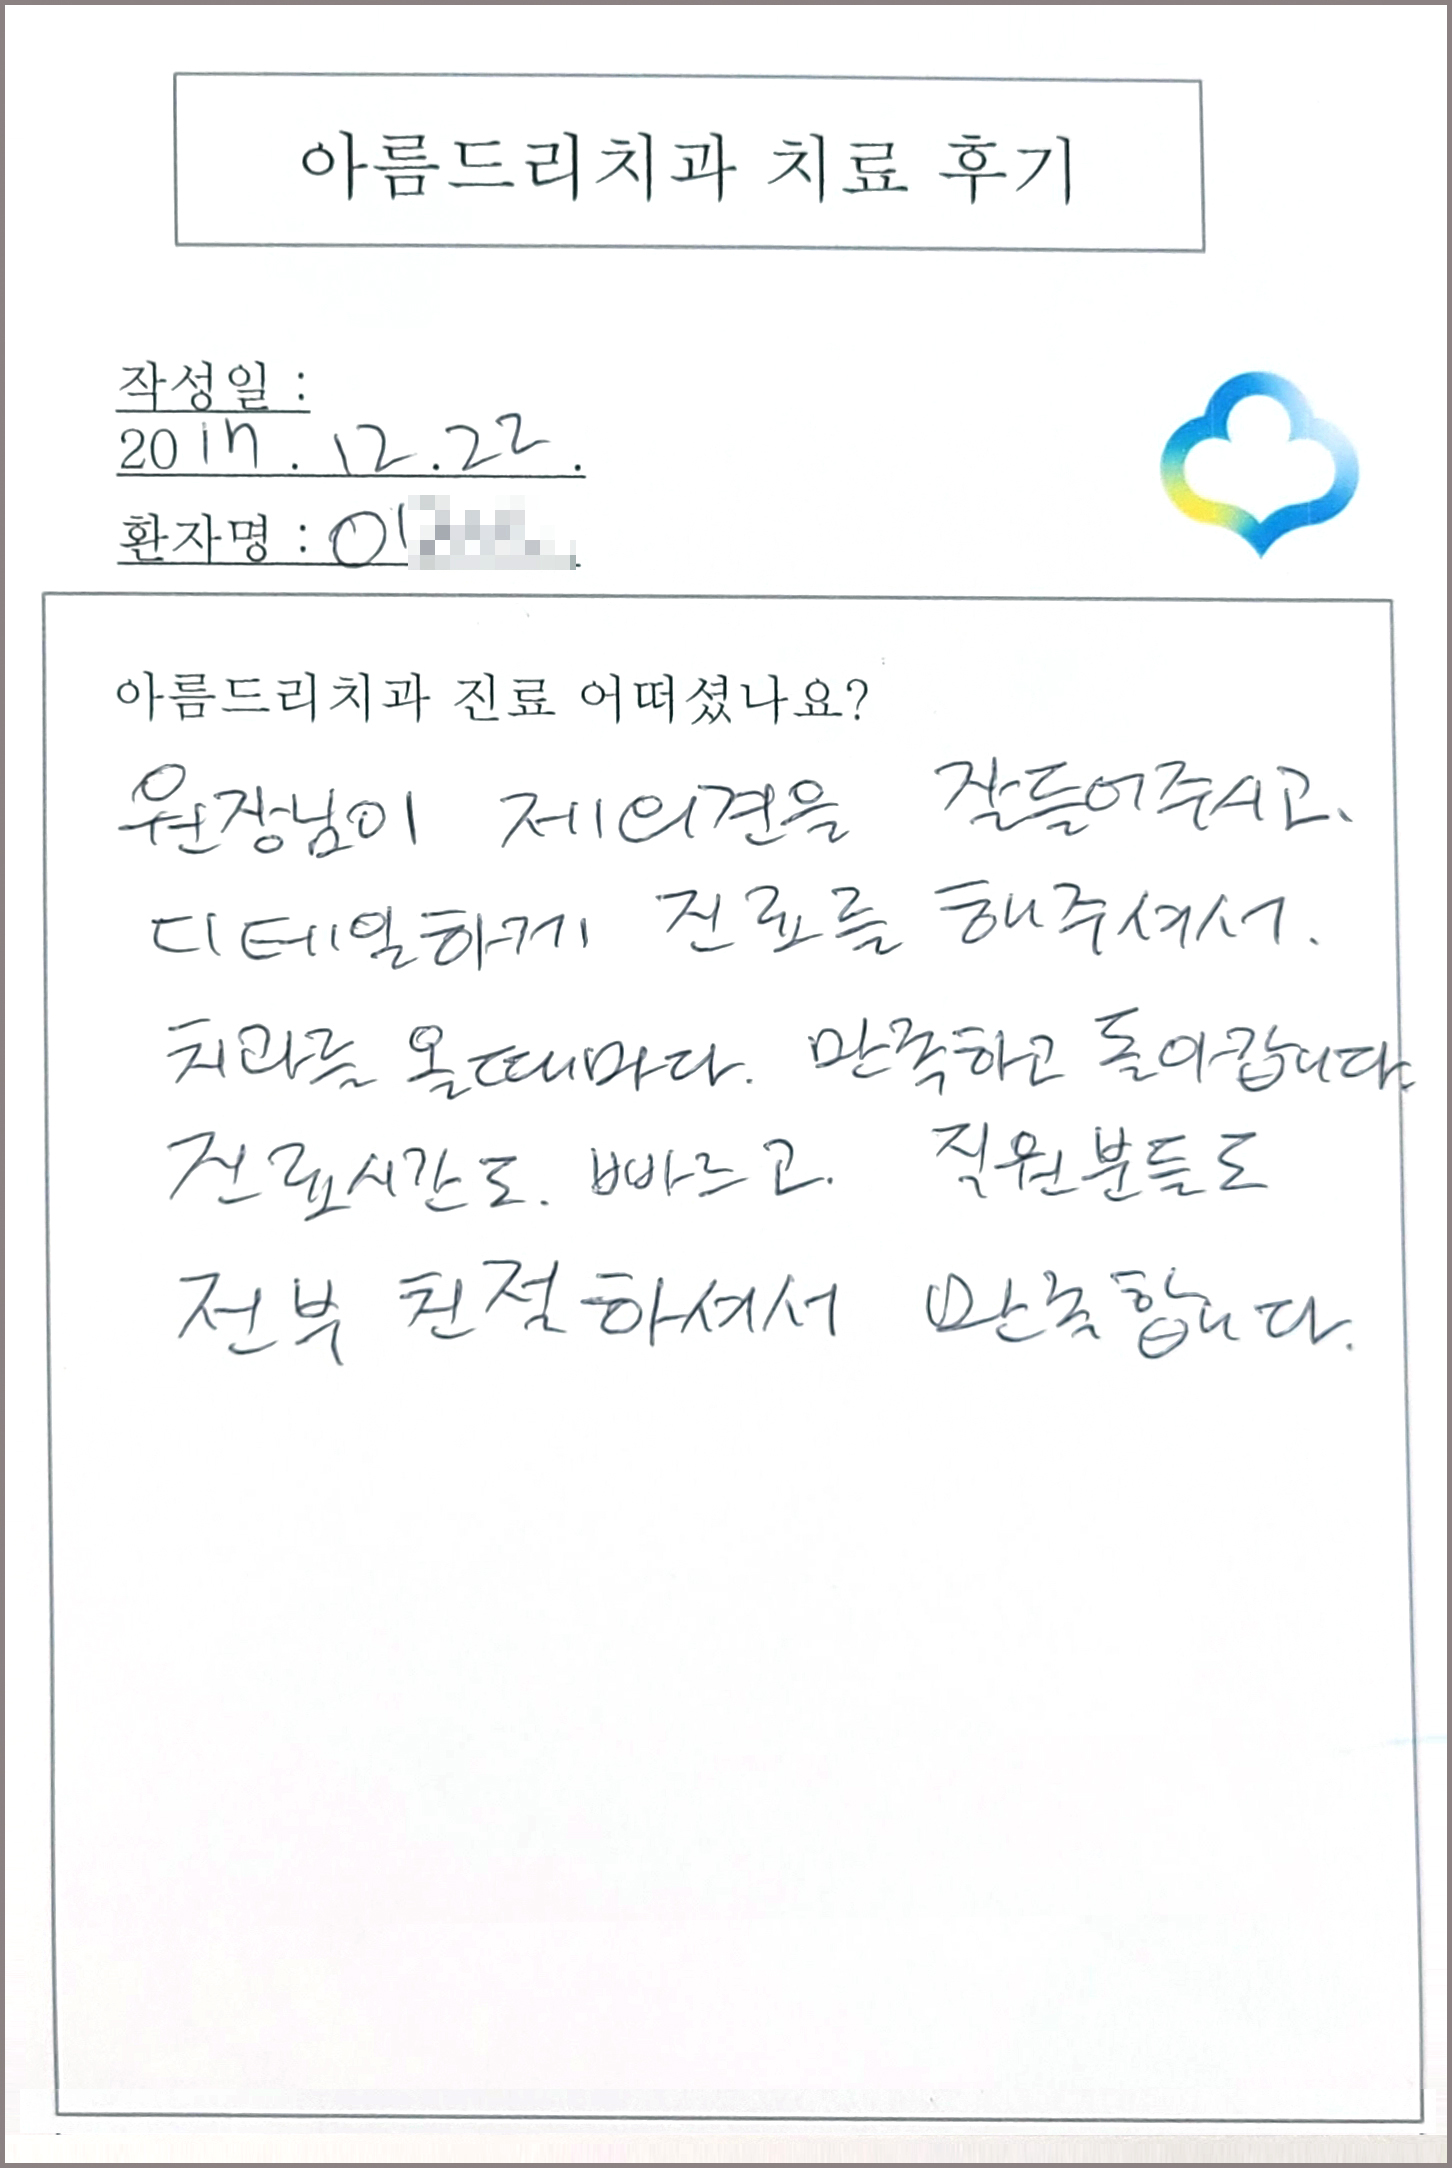 아름드리치과 치료 후기
작성일 :
2017.12.22.
환자명 : 이
아름드리치과 진료 어떠셨나요?
원장님이 제의견을 잘들어주시고.
디테일하게 진료를 해주셔서.
치과를 올때마다. 만족하고 돌아갑니다.
진료시간도. 빠르고. 직원분들도
전부 친절하셔서 만족합니다.